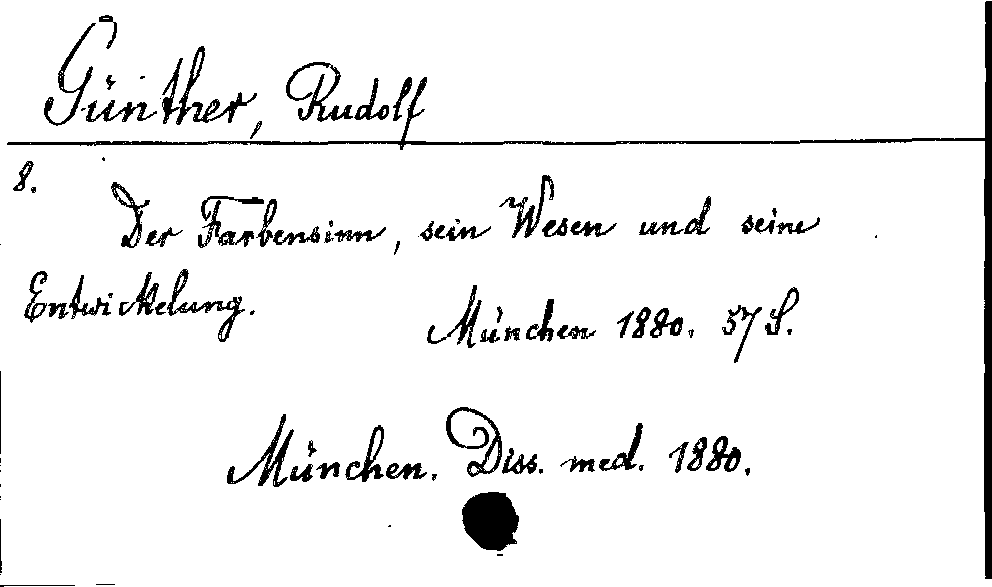 Günther, Rudolf
8.
Der Farbensinn, sein Wesen und seine
Entwickelung.
München 1880. 57 S.
München. Diss. med. 1880.